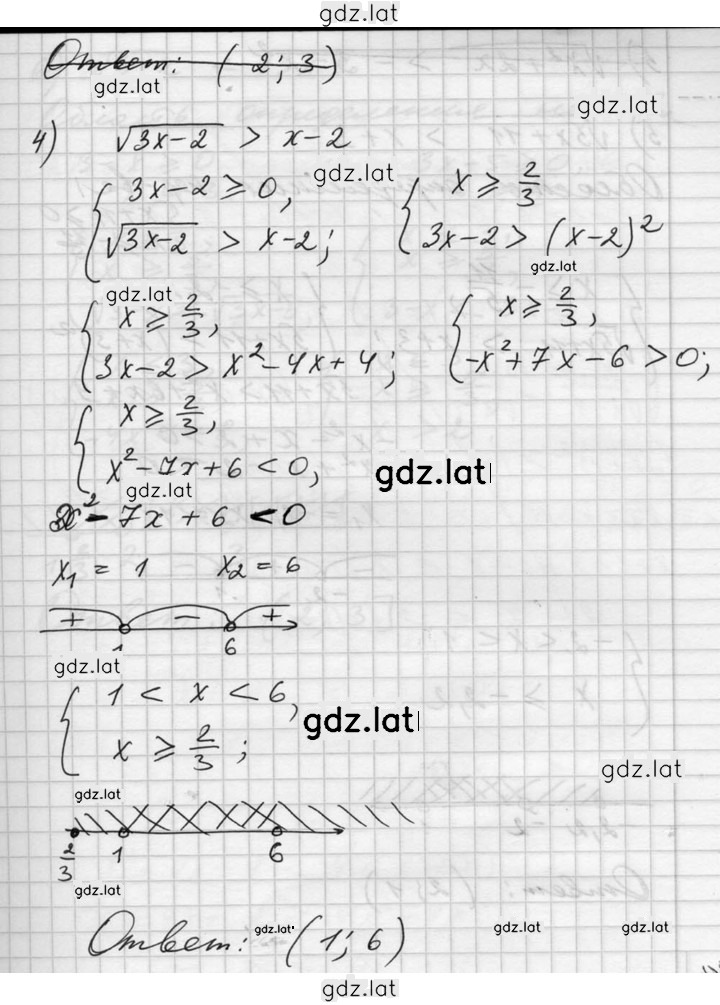 gdz.lat
Ответ: (2; 3)
gdz.lat
gdz.lat
4) √3x-2 > x-2
gdz.lat
{ 3x-2 ≥ 0, { x ≥ 2/3
√3x-2 > x-2; 3x-2 > (x-2)²
gdz.lat
gdz.lat
{ x ≥ 2/3, { x ≥ 2/3,
3x-2 > x²-4x+4; -x²+7x-6 > 0;
{ x ≥ 2/3,
x²-7x+6 < 0,
gdz.lat
gdz.lat
x²-7x+6 < 0
x₁ = 1 x₂ = 6
+ - +
1 6
gdz.lat
{ 1 < x < 6,
x ≥ 2/3;
gdz.lat
gdz.lat
gdz.lat
2/3 1 6
gdz.lat
Ответ: (1; 6)
gdz.lat
gdz.lat
gdz.lat
gdz.lat